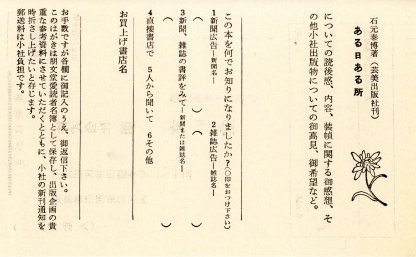 石元泰博著(芸美出版社刊)
ある日ある所
についての読後感、内容、装幀に関する御感想、そ
の他小社出版物についての御高見、御希望など。
この本を何でお知りになりましたか?(○印をおつけ下さい)
1新聞広告―新聞名― 2雑誌広告―雑誌名―
( ) ( )
3新聞、雑誌の書評をみて―新聞または雑誌名―
( )
4直接書店で 5人から聞いて 6その他
( )
お買上げ書店名
お手数ですが各欄に御記入のうえ、御返信下さい。
このはがきは朋文堂愛読者名簿として保存し、出版企画の貴
重な参考資料にさせていただくとともに、小社の新刊通知を
時折さし上げたいと存じます。
郵送料は小社負担です。